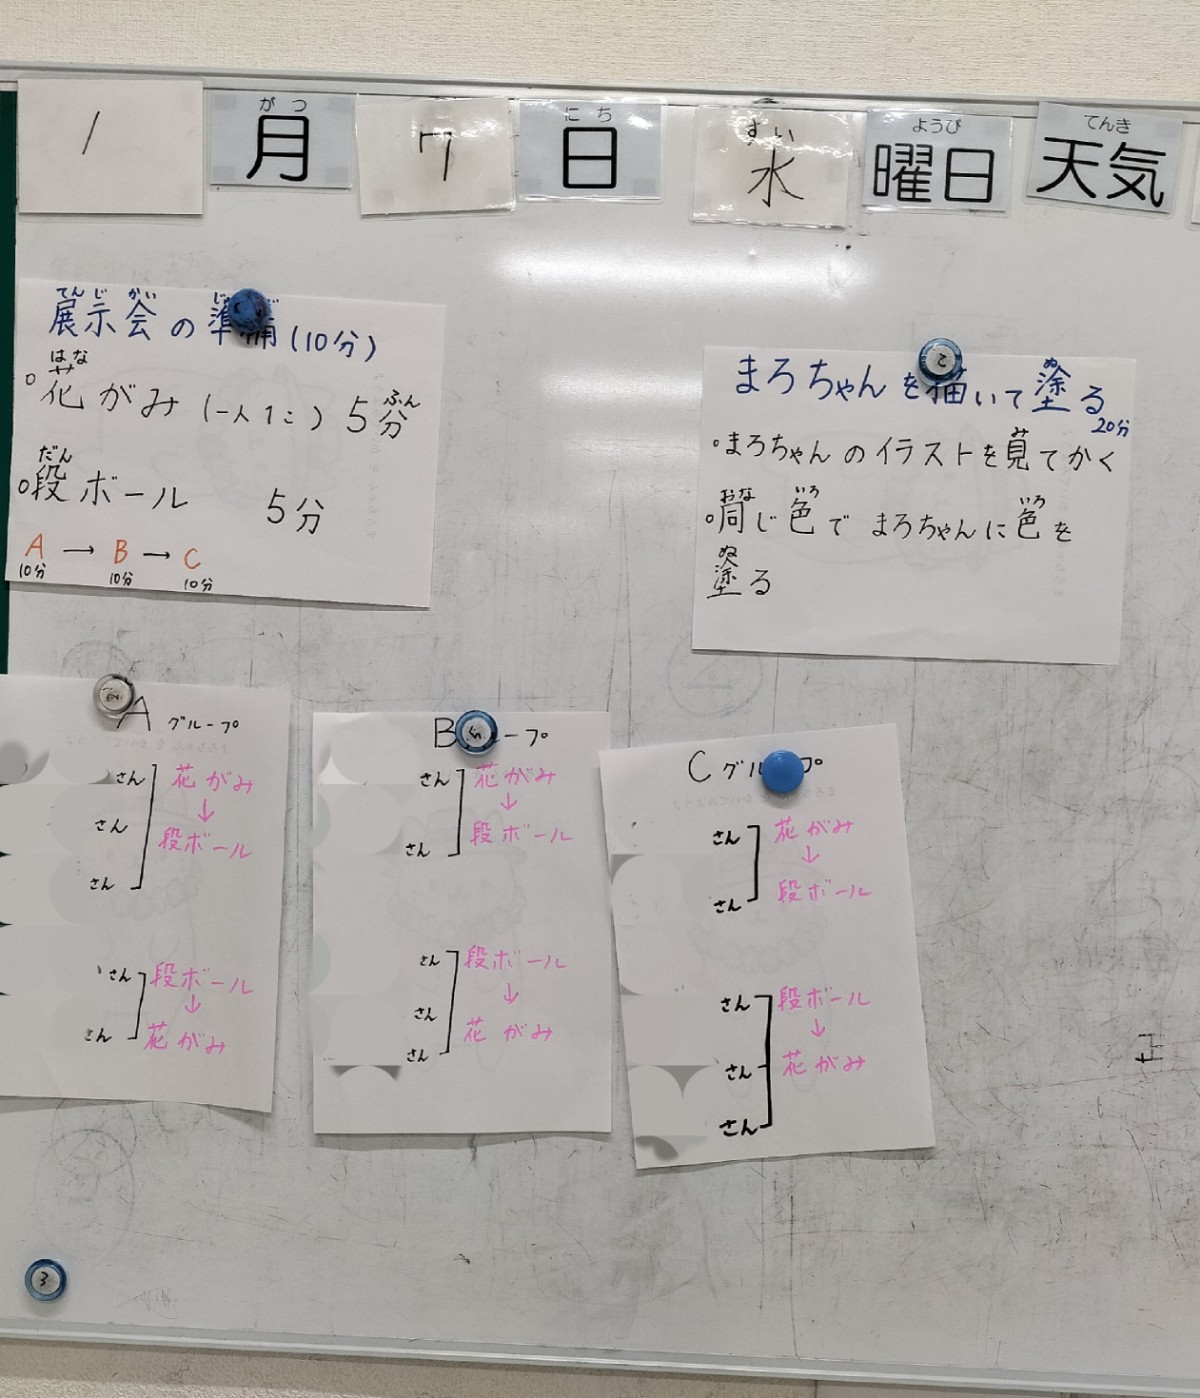 1 月 7 日 水 曜日 天気
がつ にち すい ようび てんき
てんじかい
展示会の準備(10分)
はな
○花がみ(一人1こ) 5分
ふん
だん
○段ボール 5分
A → B → C
10分 10分 10分
まろちゃんを描いて塗る
ぬ
20分
○まろちゃんのイラストを見てかく
み
おな いろ いろ
○同じ色でまろちゃんに色を
ぬ
塗る
A グループ
さん 花がみ
↓
さん 段ボール
さん
さん 段ボール
↓
さん 花がみ
B ープ
さん 花がみ
↓
さん 段ボール
さん 段ボール
↓
さん 花がみ
さん
C グル プ
さん 花がみ
↓
さん 段ボール
さん 段ボール
↓
さん 花がみ
さん
2
2
3